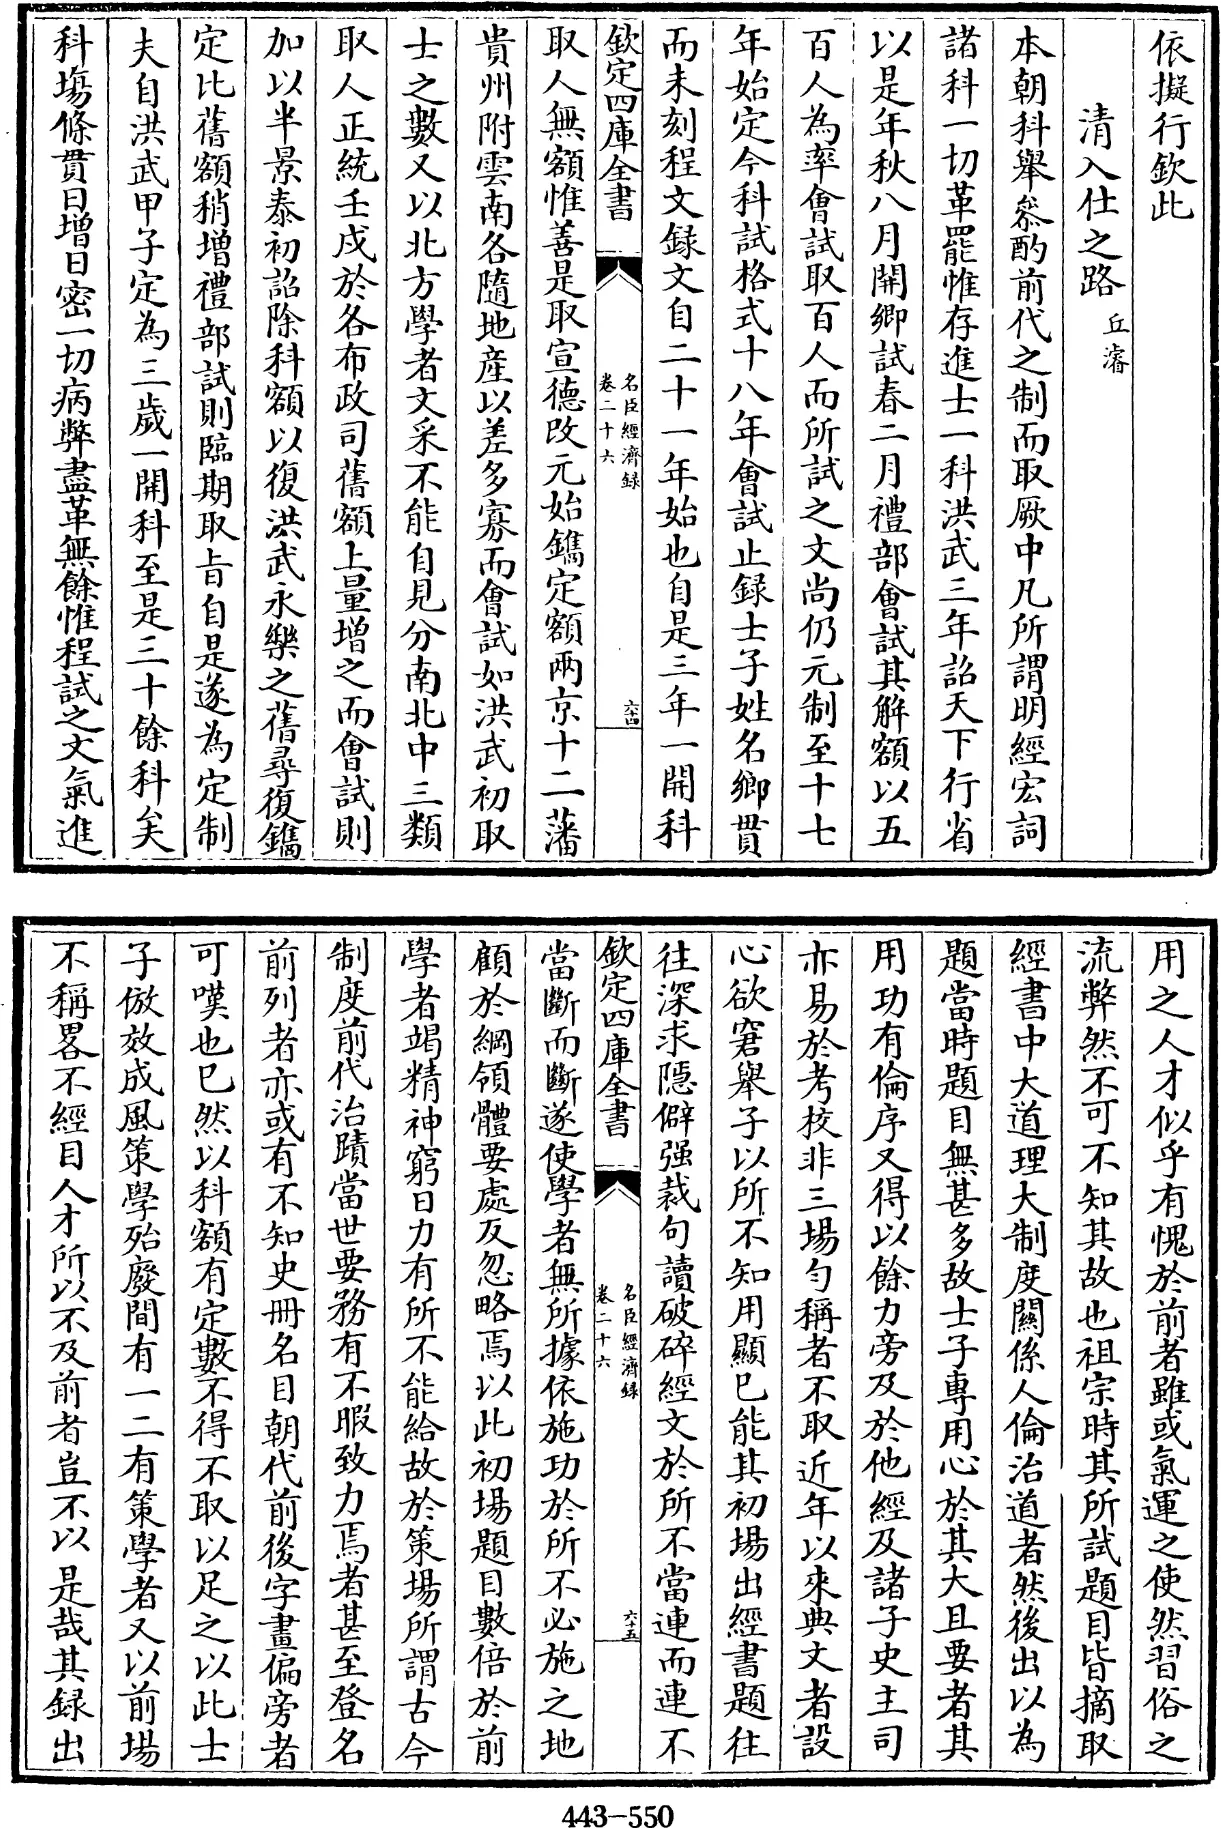 依擬行欽此
清入仕之路 丘濬
本朝科舉叅酌前代之制而取厥中凡所謂明經宏詞
諸科一切革罷惟存進士一科洪武三年詔天下行省
以是年秋八月開鄉試春二月禮部會試其解額以五
百人為率會試取百人而所試之文尚仍元制至十七
年始定今科試格式十八年會試止録士子姓名鄉貫
而未刻程文録文自二十一年始也自是三年一開科
欽定四庫全書 名臣經濟録 卷二十六 六十四
取人無額惟善是取宣德改元始鐫定額兩京十二藩
貴州附雲南各隨地產以差多寡而會試如洪武初取
士之數又以北方學者文采不能自見分南北中三類
取人正統壬戌於各布政司舊額上量增之而會試則
加以半景泰初詔除科額以復洪武永樂之舊尋復鐫
定比舊額稍增禮部試則臨期取旨自是遂為定制
夫自洪武甲子定為三歲一開科至是三十餘科矣
科塲條貫日增日密一切病弊盡革無餘惟程試之文氣進
用之人才似乎有愧於前者雖或氣運之使然習俗之
流弊然不可不知其故也祖宗時其所試題目皆摘取
經書中大道理大制度關係人倫治道者然後出以為
題當時題目無甚多故士子專用心於其大且要者其
用功有倫序又得以餘力旁及於他經及諸子史主司
亦易於考校非三場勻稱者不取近年以來典文者設
心欲窘舉子以所不知用顯已能其初場出經書題往
往深求隱僻强裁句讀破碎經文於所不當連而連不
欽定四庫全書 名臣經濟録 卷二十六 六十五
當斷而斷遂使學者無所據依施功於所不必施之地
顧於綱領體要處反忽略焉以此初場題目數倍於前
學者竭精神窮日力有所不能給故於策場所謂古今
制度前代治蹟當世要務有不暇致力焉者甚至登名
前列者亦或有不知史冊名目朝代前後字畫偏旁者
可嘆也已然以科額有定數不得不取以足之以此士
子倣效成風策學殆廢間有一二有策學者又以前場
不稱畧不經目人才所以不及前者豈不以是哉其録出
443-550